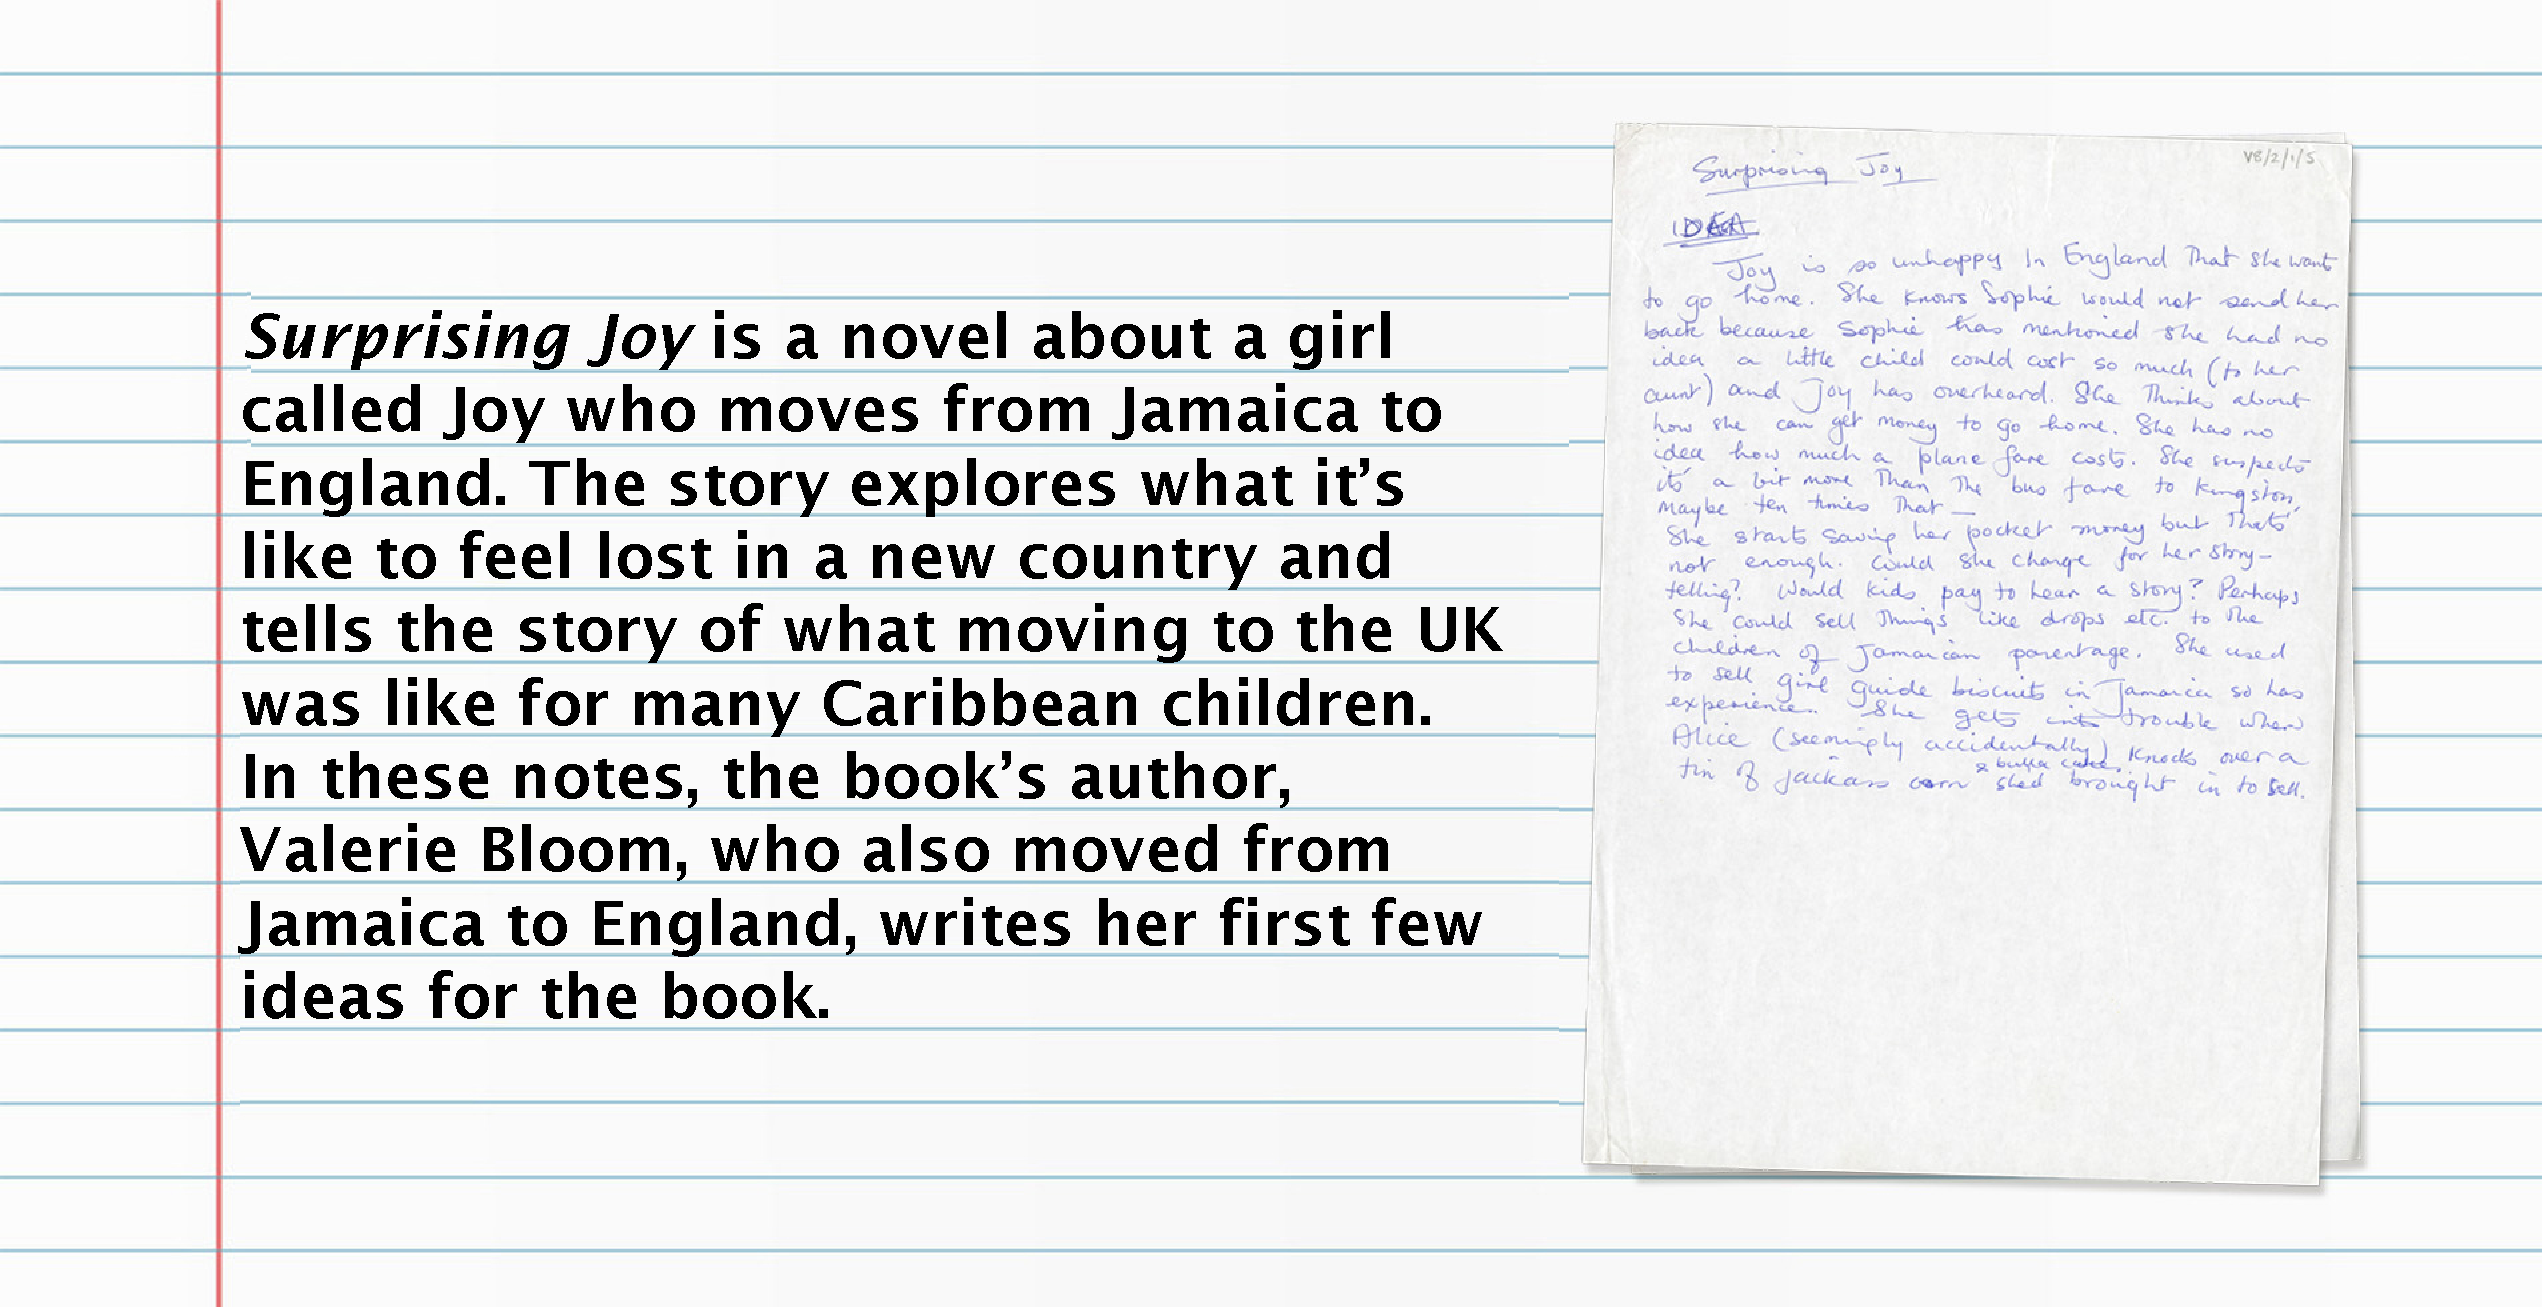 Surprising Joy is a novel about a girl
called Joy who moves from Jamaica to
England. The story explores what it’s
like to feel lost in a new country and
tells the story of what moving to the UK
was like for many Caribbean children.
In these notes, the book’s author,
Valerie Bloom, who also moved from
Jamaica to England, writes her first few
ideas for the book.
V8/2/1/5
Surprising Joy
IDEA
Joy is so unhappy in England that she want
to go home. She knows Sophie would not send her
back because Sophie has mentioned she had no
idea a little child could cost so much (to her
aunt) and Joy has overheard. She thinks about
how she can get money to go home. She has no
idea how much a plane fare costs. She suspects
its a bit more than the bus fare to Kingston,
maybe ten times that —
She starts saving her pocket money but that's
not enough. Could she charge for her story-
telling? Would kids pay to hear a story? Perhaps
she could sell things like drops etc. to the
children of Jamaican parentage. She used
to sell girl guide biscuits in Jamaica so has
experience. She gets into trouble when
Alice (seemingly accidentally) knocks over a
tin of jackass corn & bulla cake shed brought in to sell.